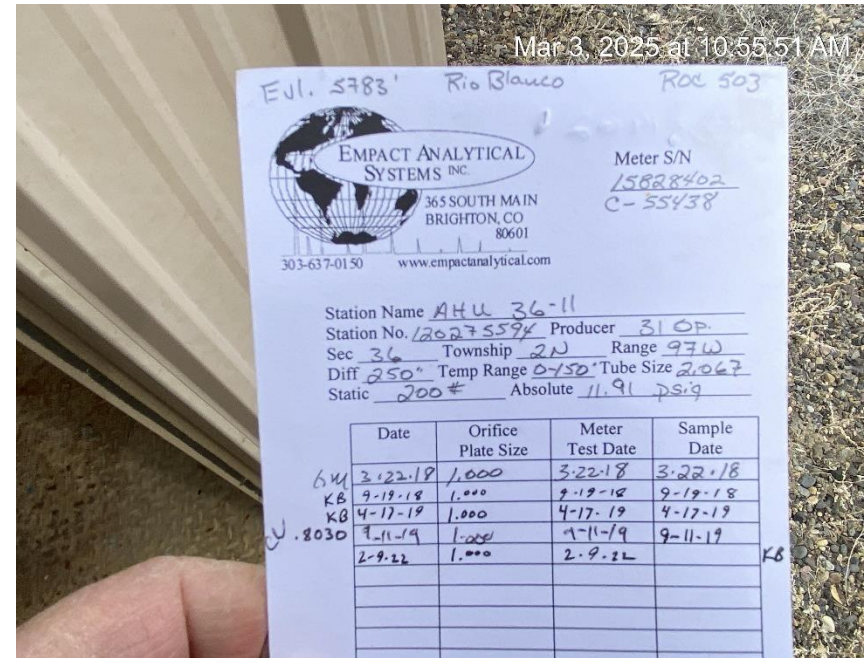 Mar 3, 2025 at 10:55:51 AM
Evl. 5783' Rio Blanco ROC 503
EMPACT ANALYTICAL
SYSTEMS INC.
365 SOUTH MAIN
BRIGHTON, CO
80601
303-637-0150 www.empactanalytical.com
Meter S/N
15828402
C-55438
Station Name AHU 36-11
Station No. 120275594 Producer 31 Op.
Sec 36 Township 2N Range 97W
Diff 250" Temp Range 0-150° Tube Size 2.067
Static 200# Absolute 11.91 psig
Date Orifice Plate Size Meter Test Date Sample Date
3.22.18 1.000 3.22.18 3.22.18
KB 9-19-18 1.000 9-19-18 9-19-18
KB 4-17-19 1.000 4-17-19 4-17-19
.8030 9-11-19 1.000 9-11-19 9-11-19
2-9-22 1.000 2-9-22 KB